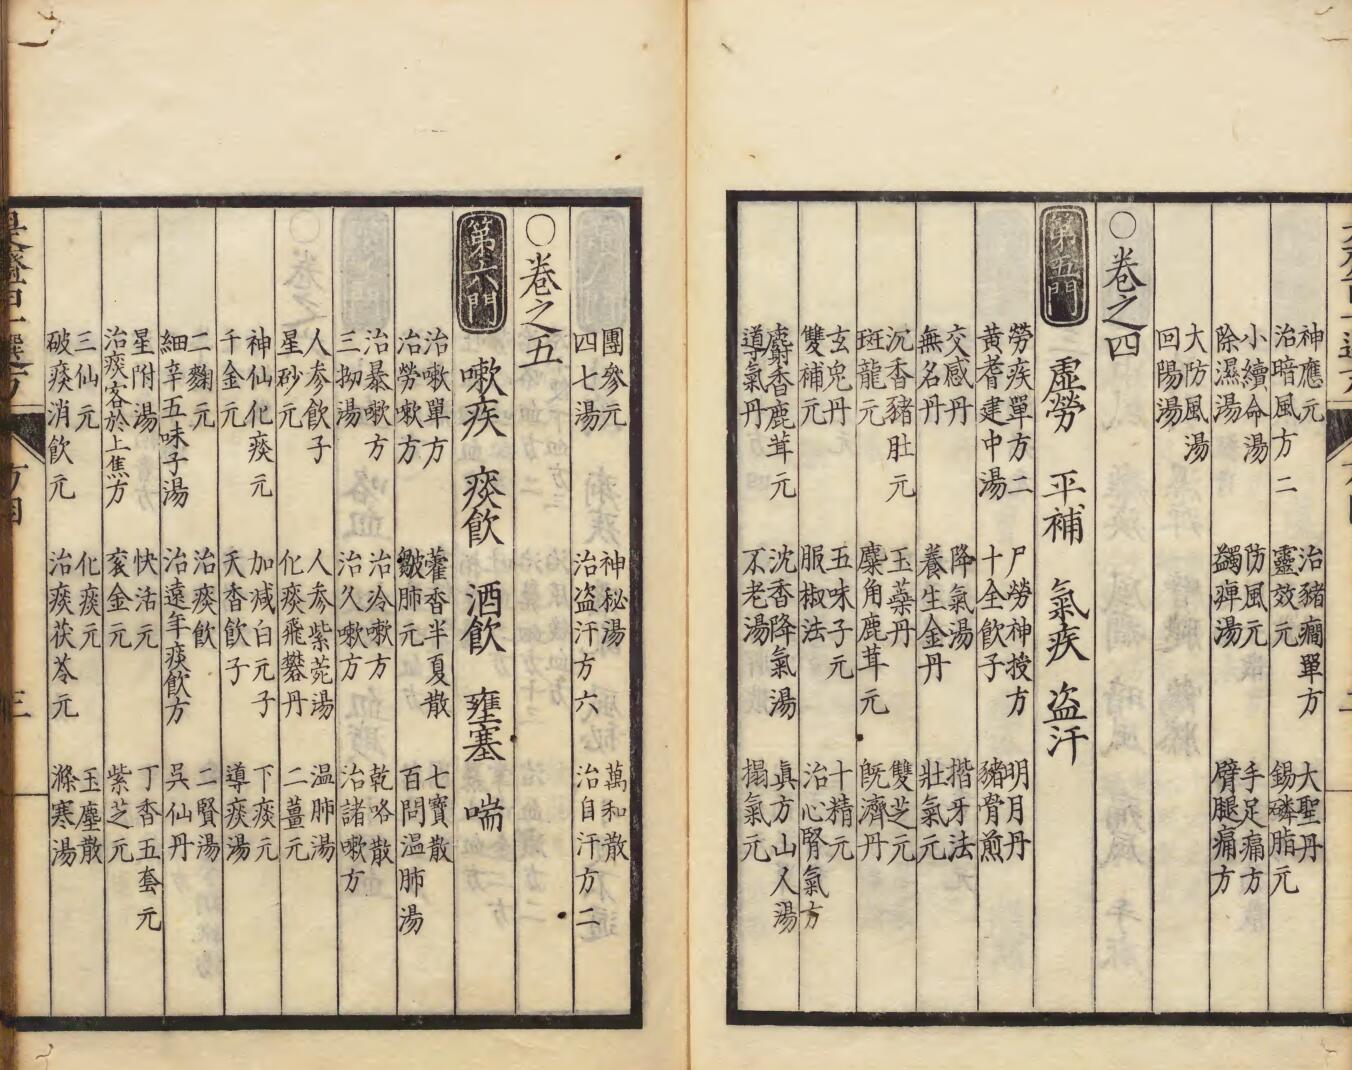 神應元 治豬癇單方 大聖丹
治暗風方二 靈效元 錫磷脂元
小續命湯 防風元 手足痛方
除濕湯 蠲痺湯 臂腿痛方
大防風湯
回陽湯
○卷之四
第五門 虛勞 平補 氣疾 盜汗
勞疾單方二 尸勞神授方 明月丹
黃耆建中湯 十全飲子 豬膏煎
交感丹 降氣湯 揩牙法
無名丹 養生金丹 壯氣元
沉香豬肚元 玉藥丹 雙芝元
斑龍元 麋角鹿茸元 既濟丹
玄兔丹 五味子元 十精元
雙補元 服椒法 治心腎氣方
麝香鹿茸元 沈香降氣湯 眞方山人湯
導氣丹 不老湯 搨氣元
團參元 神秘湯 萬和散
四七湯 治盜汗方六 治自汗方二
○卷之五
第六門 嗽疾 痰飲 酒飲 壅塞 喘
治嗽單方 藿香半夏散 七寶散
治勞嗽方 皺肺元 百問温肺湯
治暴嗽方 治冷嗽方 乾咯散
三拗湯 治久嗽方 治諸嗽方
人參飲子 人參紫菀湯 温肺湯
星砂元 化痰飛礬丹 二薑元
神仙化痰元 加减白元子 下痰元
千金元 天香飲子 導痰湯
二麴元 治痰飲 二賢湯
細辛五味子湯 治遠年痰飲方 吳仙丹
星附湯 快活元 丁香五套元
治痰客於上焦方 衮金元 紫芝元
三仙元 化痰元 玉塵散
破痰消飲元 治痰茯苓元 滌寒湯
方四 三